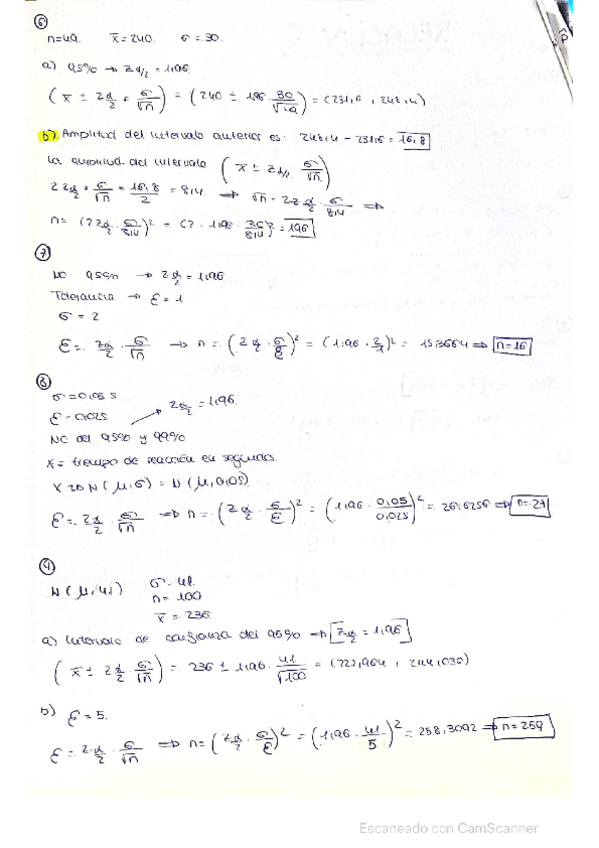 ⑥
n=49. x̄=240. σ=30.
a) 95% → Zα/2 = 1,96
(x̄ ± Zα/2 · σ/√n) = (240 ± 1,96 · 30/√49) = (231,6 , 248,4)
b) Amplitud del intervalo anterior es: 248,4 - 231,6 = 16,8
La amplitud del intervalo (x̄ ± Zα/2 · σ/√n)
2 Zα/2 · σ/√n = 16,8/2 = 8,4 ⇒ √n = 2Zα/2 · σ/8,4 ⇒
n = (2Zα/2 · σ/8,4)² = (2 · 1,96 · 30/8,4)² = 196
⑦
NC 95% → Zα/2 = 1,96
Tolerancia → ε = 1
σ = 2
ε = Zα/2 · σ/√n → n = (Zα/2 · σ/ε)² = (1,96 · 2/1)² = 15,3664 ⇒ n=16
⑧
σ = 0,05 s
ε = 0,025 Zα/2 = 1,96
NC del 95% y 99%
X = tiempo de reacción en segundos.
X → N(μ,σ) = N(μ,0,05)
ε = Zα/2 · σ/√n ⇒ n = (Zα/2 · σ/ε)² = (1,96 · 0,05/0,025)²
④
N(μ,41) σ = 41
n = 100
x̄ = 236
a) Intervalo de confianza del 95% → Zα/2 = 1,96
(x̄ ± Zα/2 · σ/√n) = 236 ± 1,96 · 41/√100 = (227,964 , 244,036)
b) ε = 5.
ε = Zα/2 · σ/√n ⇒ n = (Zα/2 · σ/ε)² = (1,96 · 41/5)² = 258,3092 ⇒ n=259
Escaneado con CamScanner